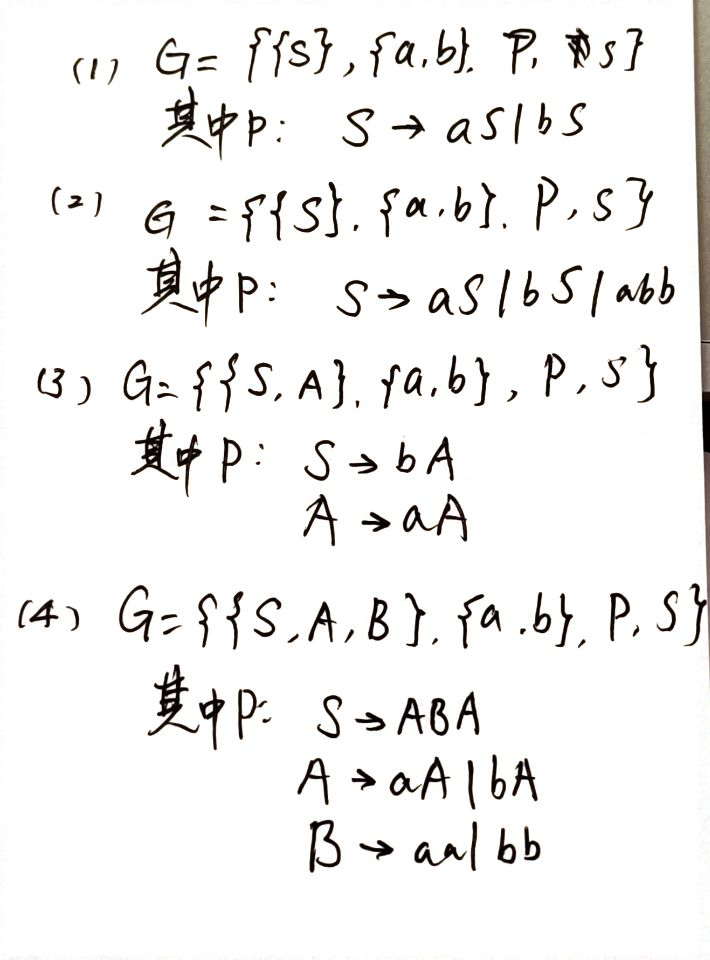 (1) G= {{S}, {a,b}. P, S}
其中P: S → aS|bS
(2) G = {{S}. {a,b}. P, S}
其中P: S → aS|bS|abb
(3) G= {{S, A}. {a,b}, P, S}
其中P: S → bA
A → aA
(4) G= {{S, A, B}. {a.b}. P, S}
其中P: S → ABA
A → aA|bA
B → aa|bb